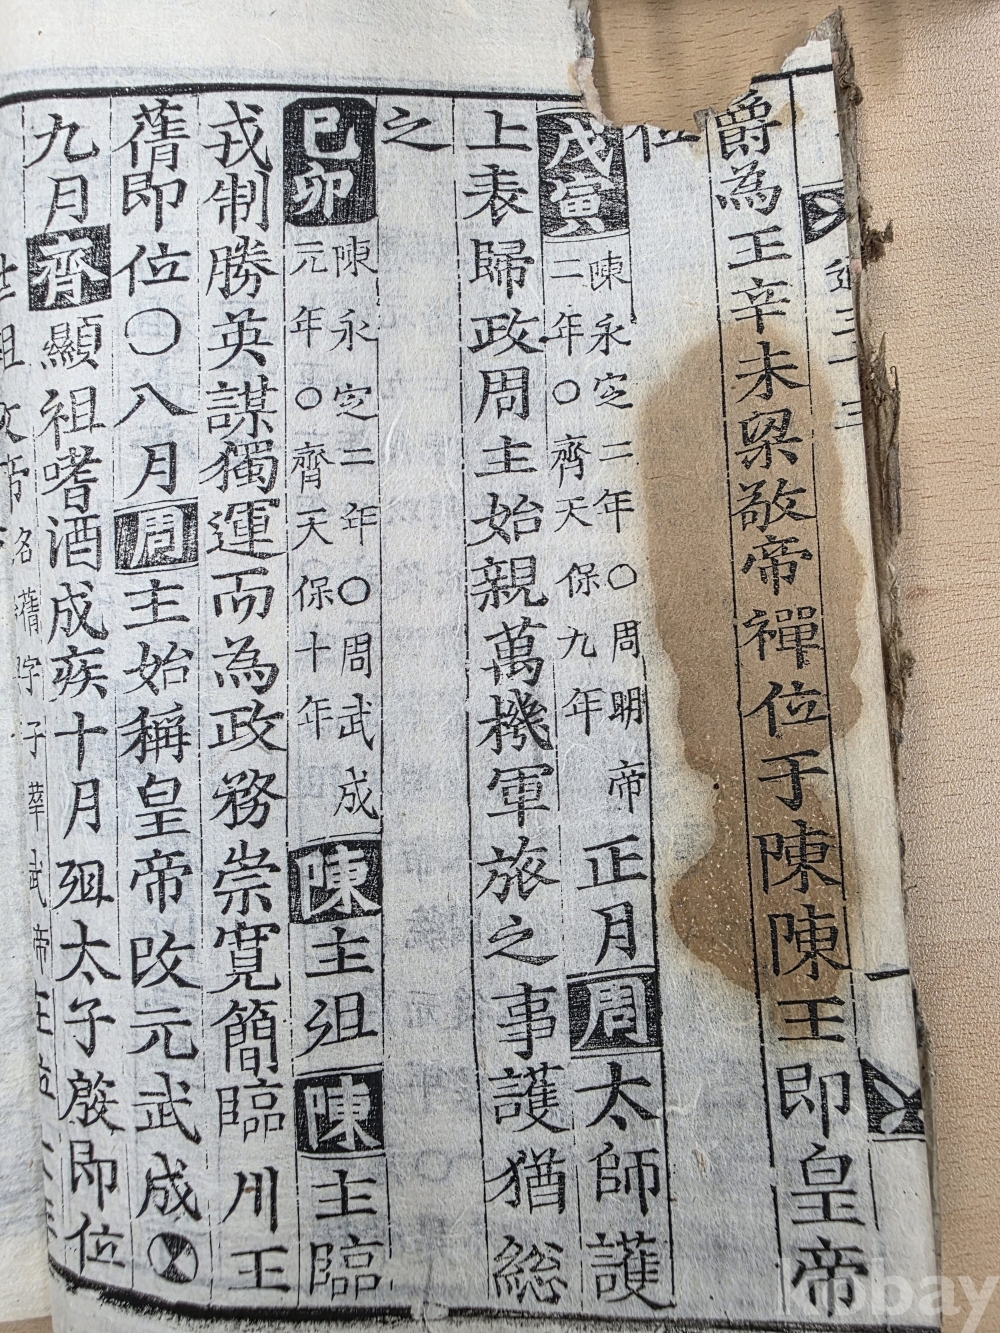 爵為王辛未梁敬帝禪位于陳陳王即皇帝
位
戊寅 陳永定二年○周明帝
二年○齊天保九年
正月周太師護
上表歸政周主始親萬機軍旅之事護猶総
之
己卯 陳永定三年○周武成
元年○齊天保十年
陳主殂陳主臨
戎制勝英謀獨運而為政務崇寬簡臨川王
蒨即位○八月周主始稱皇帝改元武成
九月齊顯祖嗜酒成疾十月殂太子殷即位
kobay